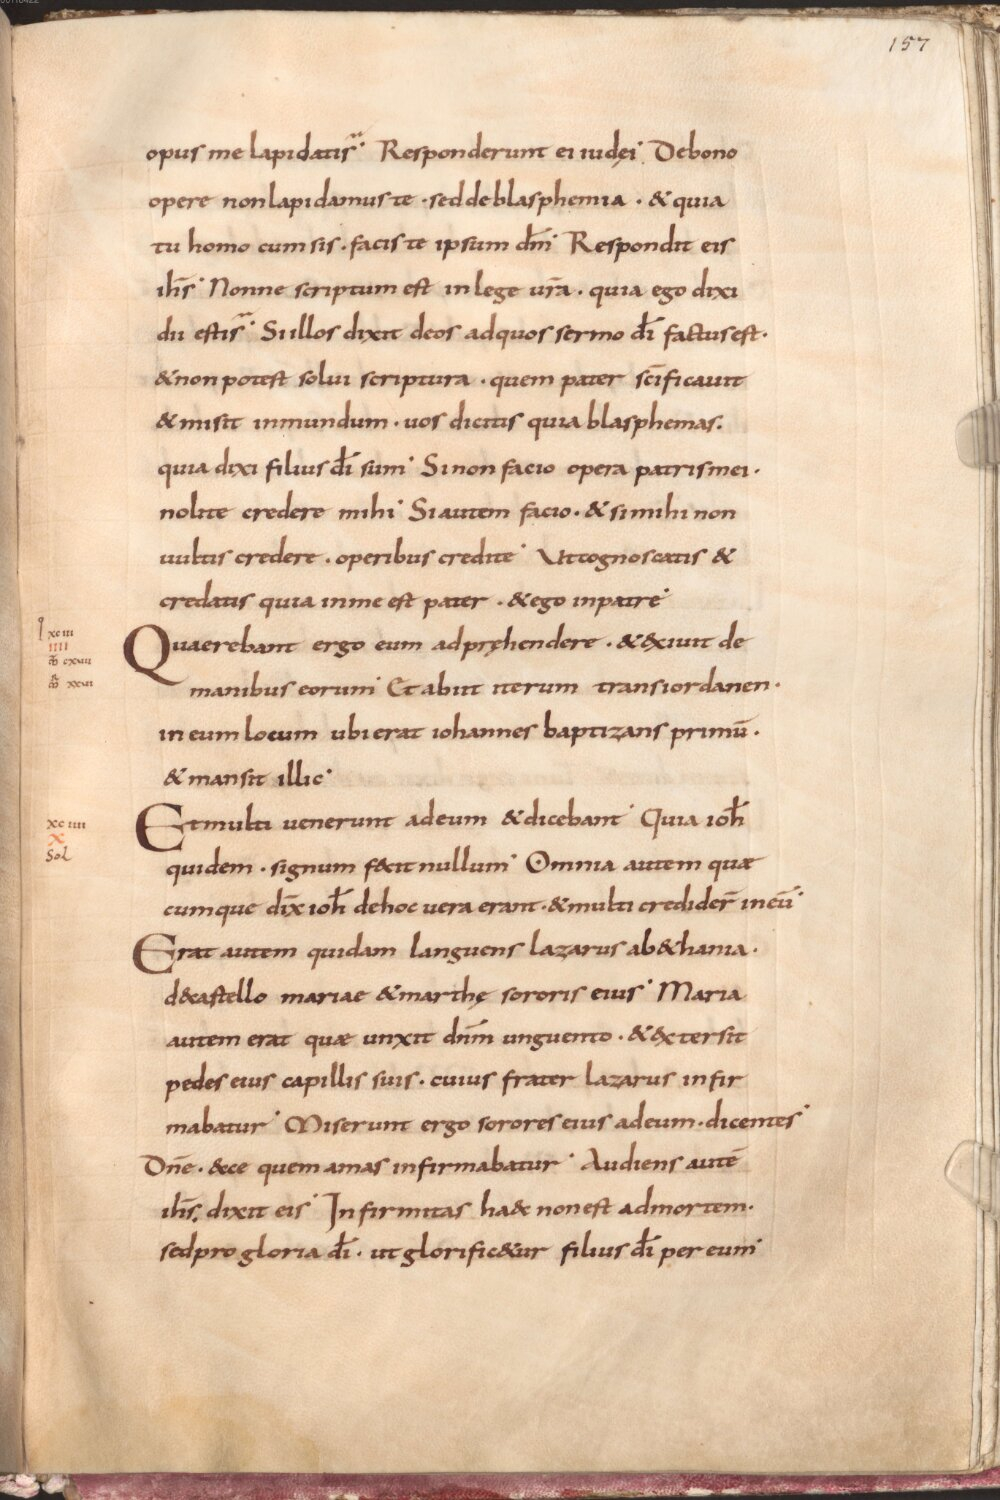 157
opus me lapidatis· Responderunt ei iudęi. De bono
opere non lapidamus te · sed de blasphemia · & quia
tu homo cum sis · facis te ipsum dm̄· Respondit eis
ihs̄· Nonne scriptum est in lege ur̄a · quia ego dixi
dii estis· Si illos dixit deos ad quos sermo dī factus est·
& non potest solui scriptura · quem pater sc̄ificauit
& misit in mundum · uos dicitis quia blasphemas.
quia dixi filius dī sum· Si non facio opera patris mei·
nolite credere mihi· Si autem facio · & si mihi non
uultis credere · operibus credite· Ut cognoscatis &
credatis quia in me est pater · & ego in patre·
xciii
Quaerebant ergo eum adpręhendere · & exiuit de
IIII
manibus eorum· Et abiit iterum trans iordanen·
in eum locum ubi erat iohannes baptizans primū·
& mansit illic·
xciiii
Et multi uenerunt ad eum & dicebant· Quia ioh̄
X
Sol
quidem · signum f&cit nullum· Omnia autem quæ
cumque dix̄ ioh̄ de hoc uera erant · & multi credider̄ in eū·
Erat autem quidam languens lazarus a b&hania·
de castello mariae & marthę sororis eius· Maria
autem erat quæ unxit dnm̄ unguento · & extersit
pedes eius capillis suis · cuius frater lazarus infir
mabatur· Miserunt ergo sorores eius ad eum · dicentes·
Dn̄e · ecce quem amas infirmabatur· Audiens autē
ihs̄. dixit eis· Infirmitas haec non est ad mortem·
sed pro gloria dī · ut glorific&ur filius dī per eum·